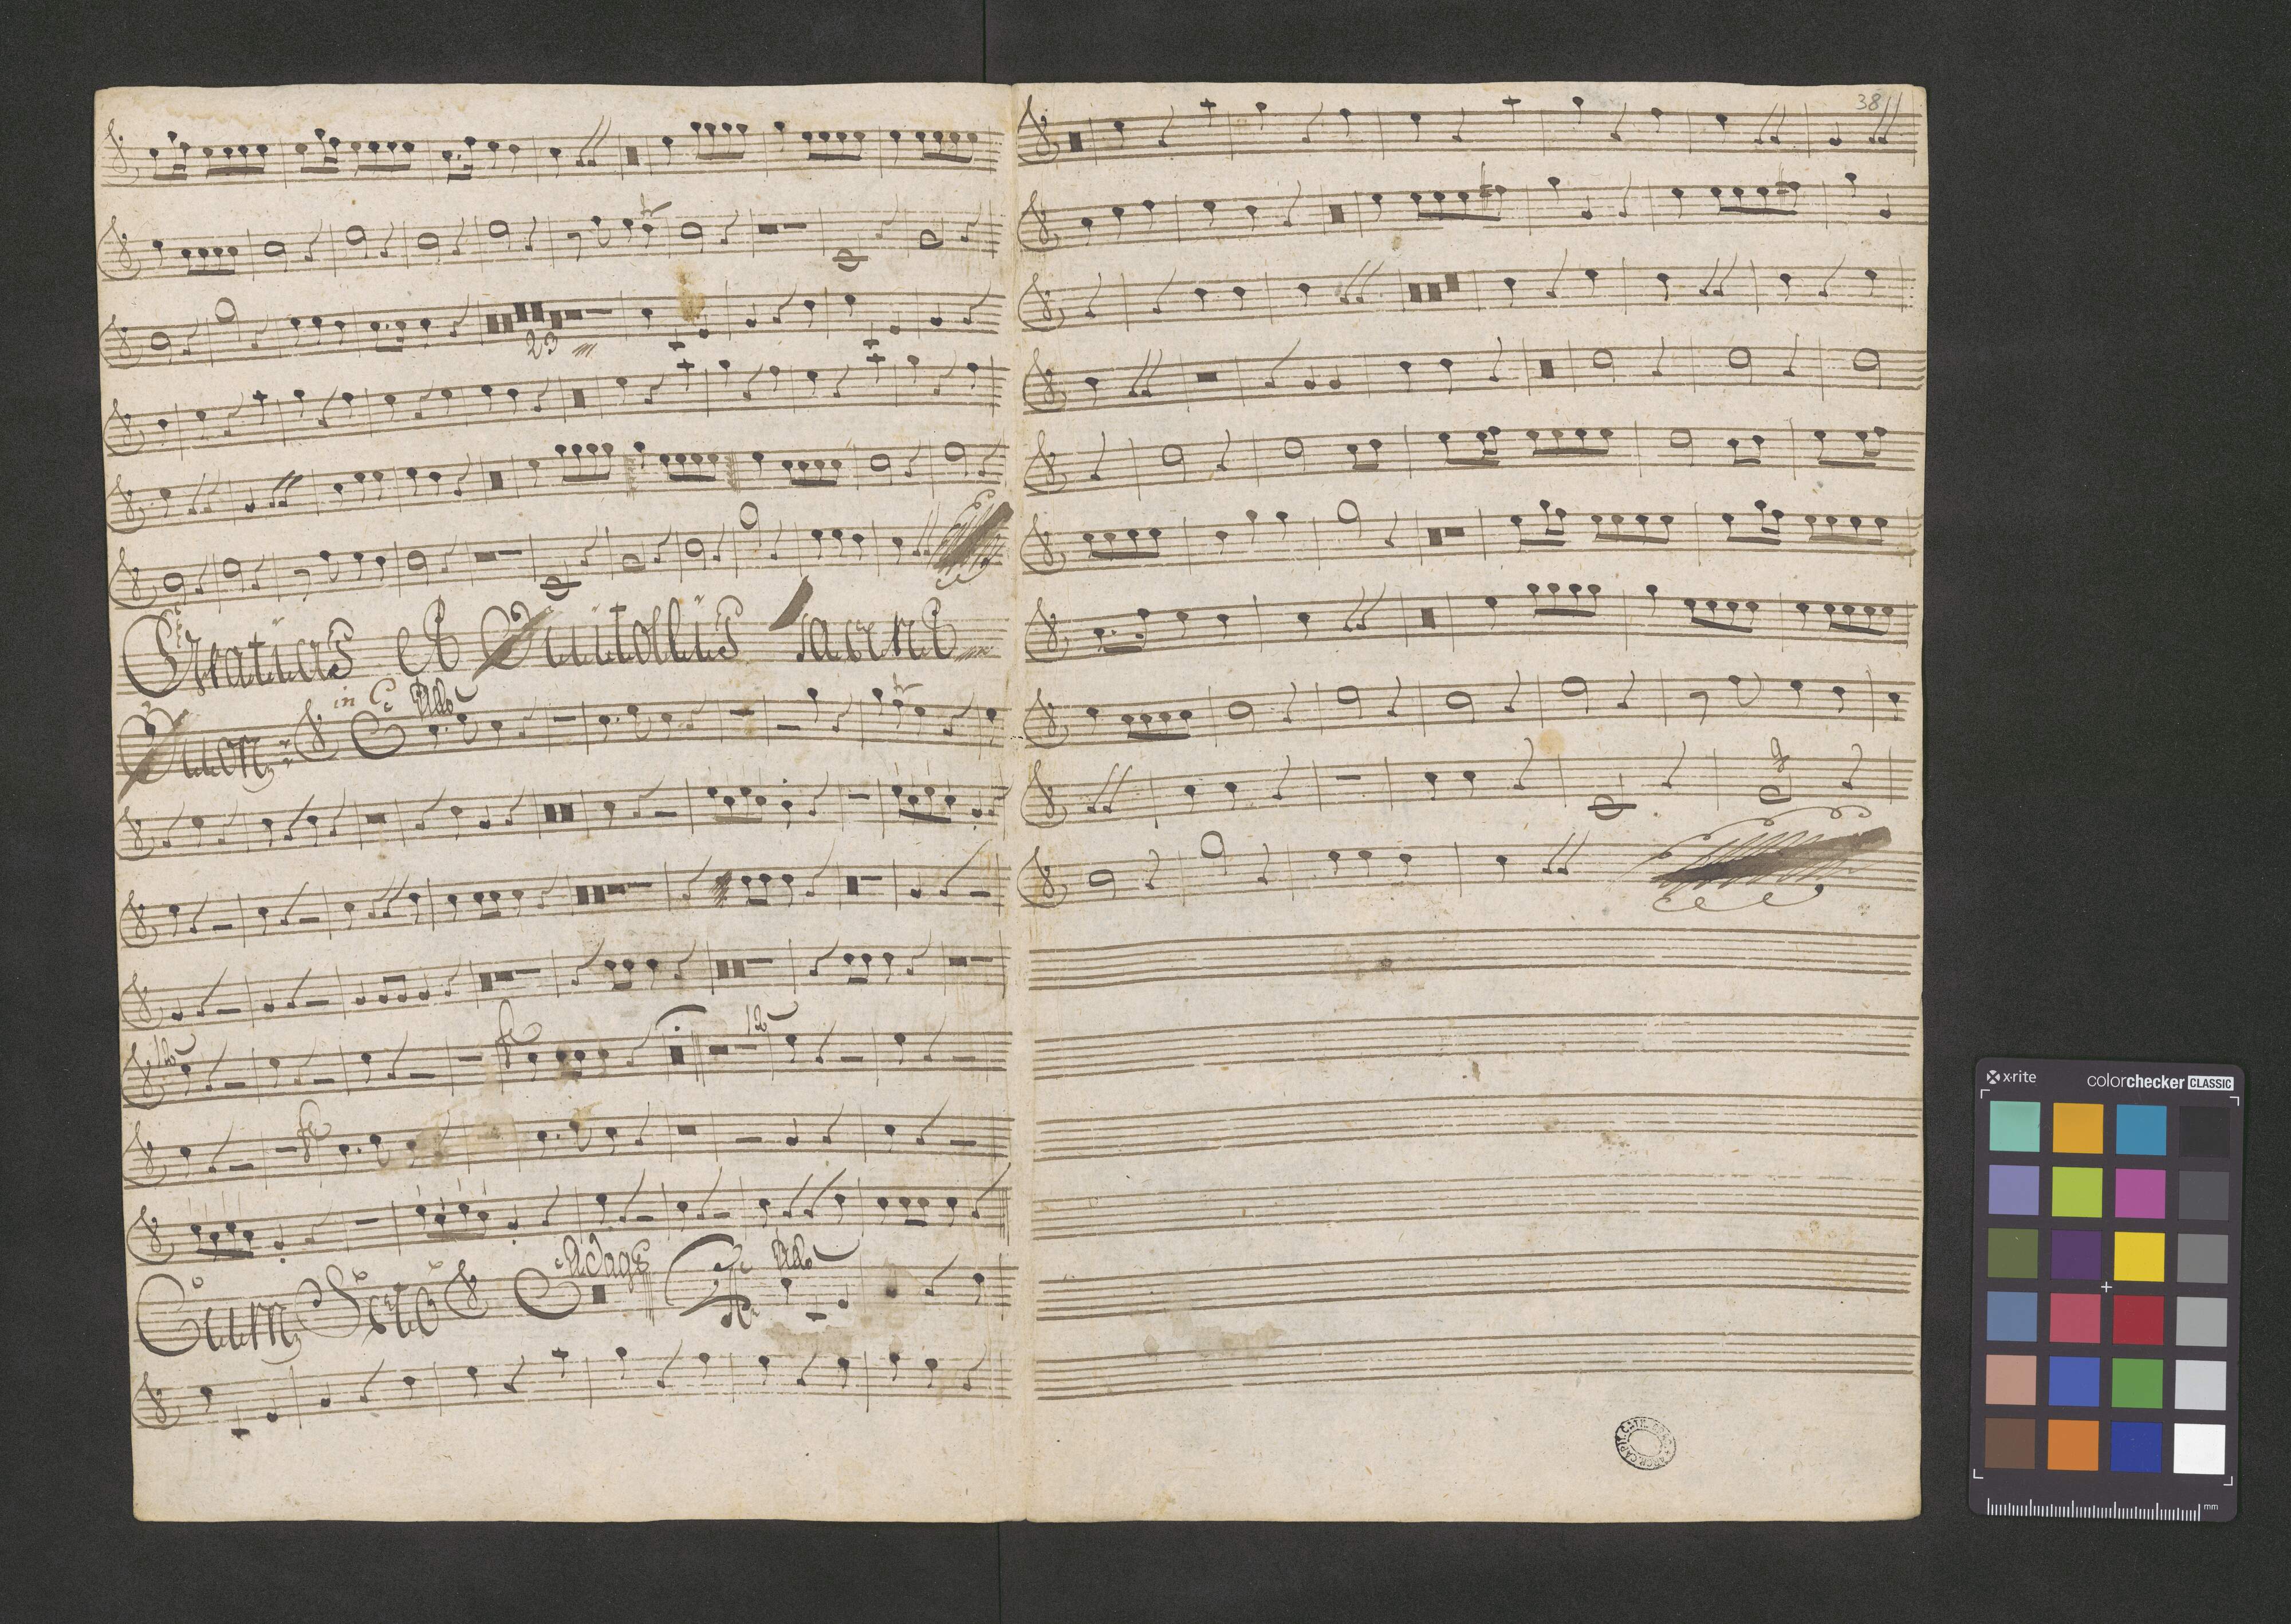 23
Gratias et Quitollis Tacent
Quon: in C Allo
po
fe
po
fe
Cum Scto Adago Allo
38
x·rite
colorchecker CLASSIC
mm